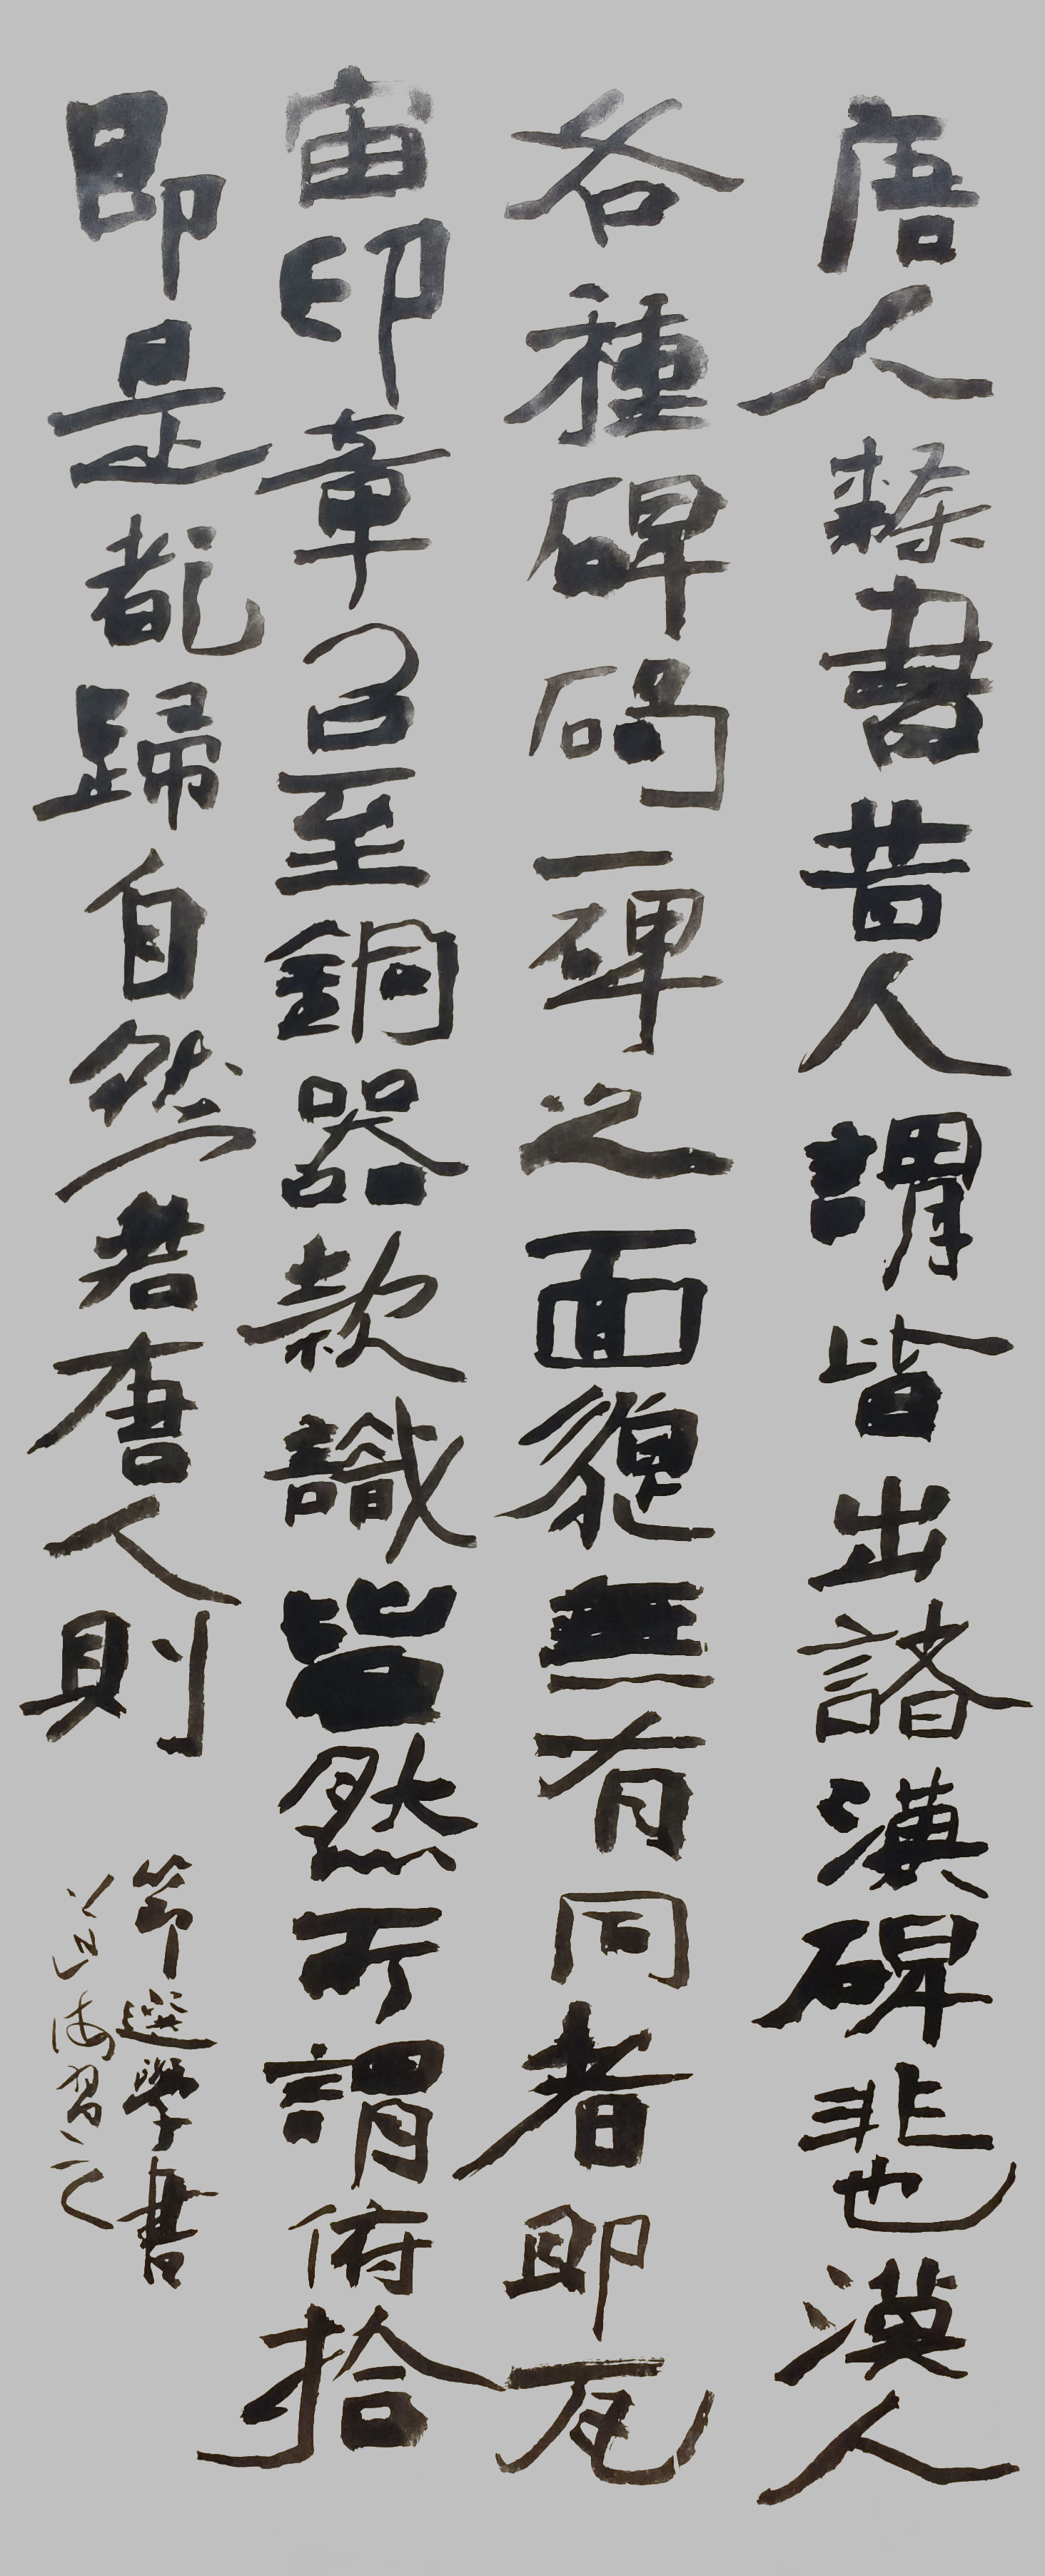 唐人隸書昔人謂皆出諸漢碑非也漢人
各種碑碣一碑之面貌無有同者即瓦
宙印章以至銅器款識皆然所謂俯拾
即是都歸自然者唐人則
節選學書
道海習之